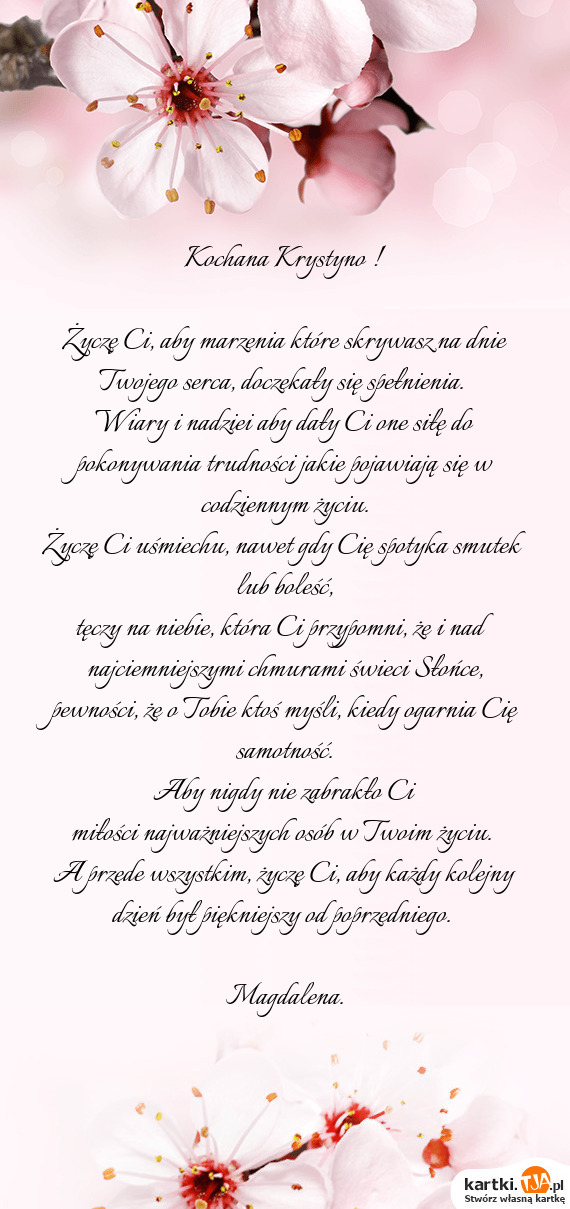 Kochana Krystyno !
Życzę Ci, aby marzenia które skrywasz na dnie
Twojego serca, doczekały się spełnienia.
Wiary i nadziei aby dały Ci one siłę do
pokonywania trudności jakie pojawiają się w
codziennym życiu.
Życzę Ci uśmiechu, nawet gdy Cię spotyka smutek
lub boleść,
tęczy na niebie, która Ci przypomni, że i nad
najciemniejszymi chmurami świeci Słońce,
pewności, że o Tobie ktoś myśli, kiedy ogarnia Cię
samotność.
Aby nigdy nie zabrakło Ci
miłości najważniejszych osób w Twoim życiu.
A przede wszystkim, życzę Ci, aby każdy kolejny
dzień był piękniejszy od poprzedniego.
Magdalena.
kartki.TJA.pl
Stwórz własną kartkę